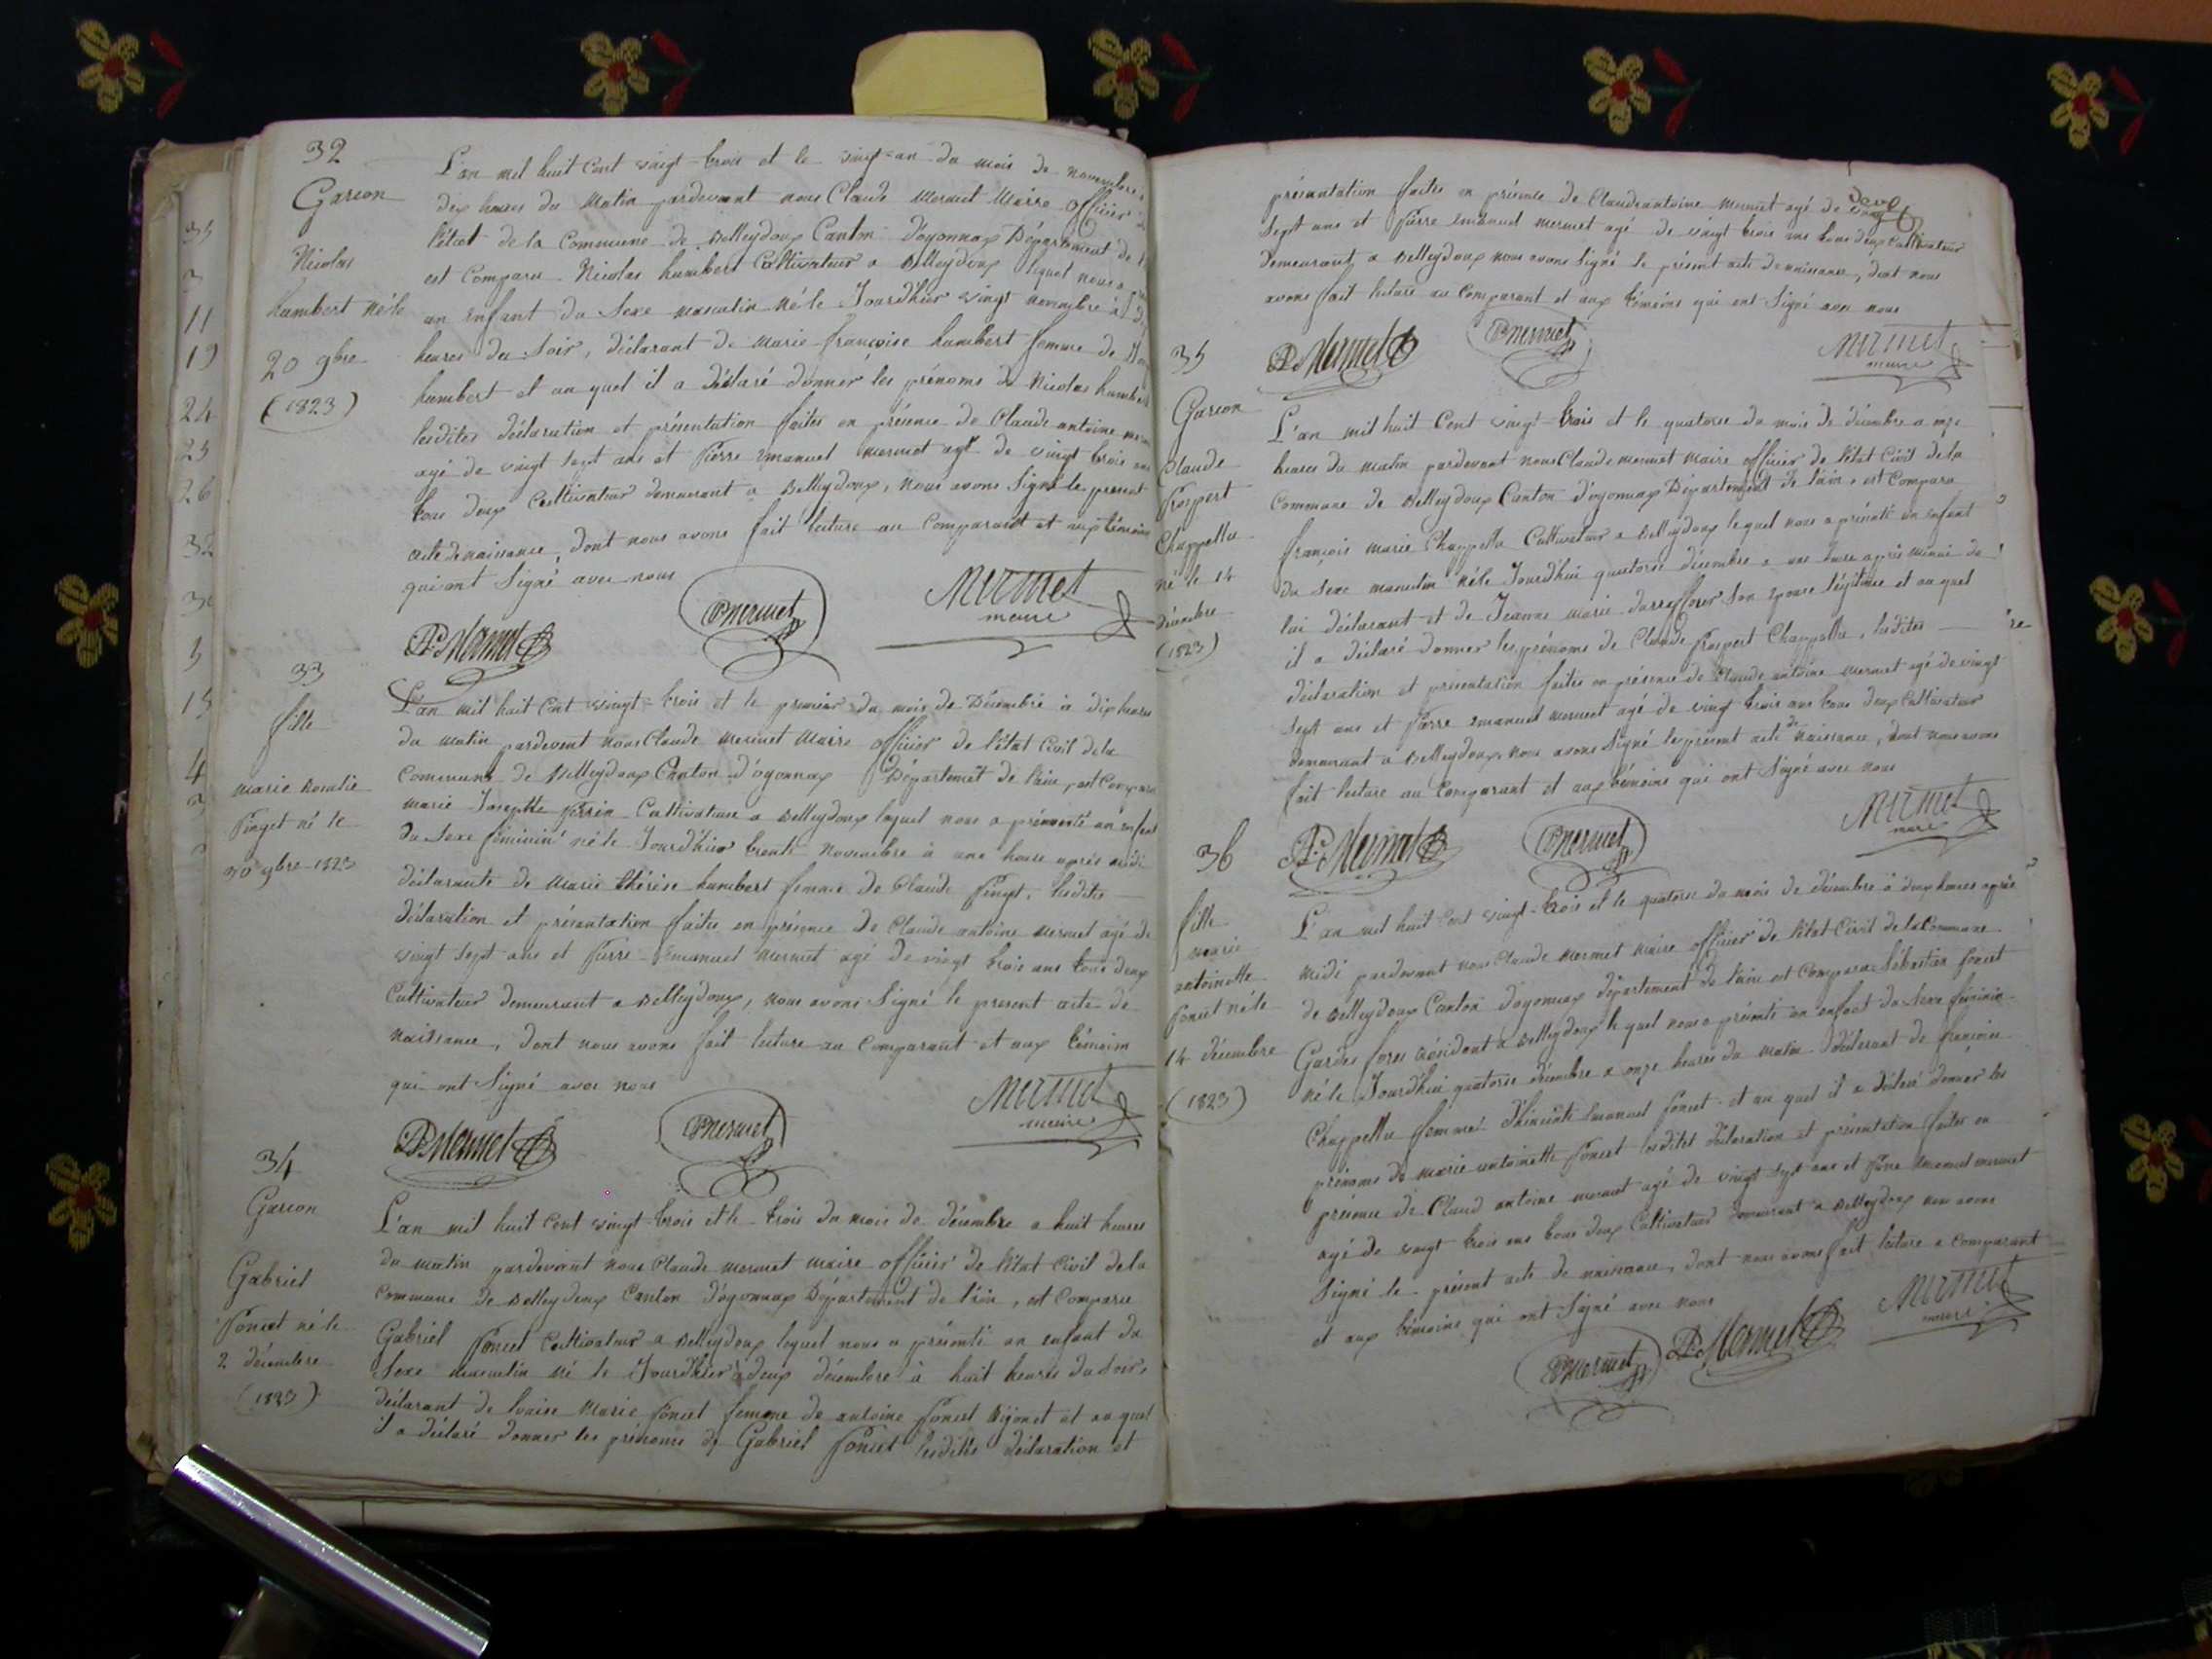 32
Garcon
Nicolas
humbert né le
20 9bre
(1823)
L'an mil huit Cent vingt-trois et le vingt=un du mois de novembre
dix heures du Matin pardevant nous Claude Mermet Maire officier
l'état de la Commune de Belleydoux Canton d'oyonnax Département de
est Comparu Nicolas humbert Cultivateur a Belleydoux lequel nous a
un Enfant du Sexe masculin né le Jourdhier vingt novembre à
heures du Soir, déclarant de Marie françoise humbert femme de
humbert et au quel il a déclaré donner les prénoms de Nicolas humbert
lesdites déclaration et présentation faites en présence de Claude antoine
agé de vingt sept ans et Pierre Emanuel Mermet agé de vingt trois ans
tous deux Cultivateur demeurant a Belleydoux, nous avons Signé le présent
acte de naissance, dont nous avons fait lecture au Comparant et aux témoins
qui ont Signé avec nous
Mermet Mermet Mermet
maire
33
fille
marie Rosalie
Pinget né le
30 9bre 1823
L'an mil huit Cent vingt-trois et le premier du mois de Décembre à dix heures
du matin pardevent nous Claude Mermet Maire officier de l'état Civil de la
Commune de Belleydoux Canton d'oyonnax Département de l'ain, est Comparu
marie Josephte Perrin Cultivatrice a Belleydoux laquel nous a présenté un enfant
du Sexe féminin né le Jourdhier trente Novembre à une heure après midi
déclarante de Marie thérèse humbert femme de Claude Pinget, lesdites
déclaration et présentation faites en présence de Claude antoine Mermet agé de
vingt sept ans et Pierre Emanuel Mermet agé de vingt trois ans tous deux
Cultivateur demeurant a Belleydoux, nous avons Signé le present acte de
naissance, dont nous avons fait lecture au Comparant et aux témoins
qui ont Signé avec nous
Mermet Mermet Mermet
maire
34
Garcon
Gabriel
Poncet né le
2 décembre
(1823)
L'an mil huit Cent vingt-trois et le trois du mois de décembre a huit heures
du matin pardevant nous Claude Mermet maire officier de l'état Civil de la
Commune de Belleydoux Canton d'oyonnax Département de l'ain, est Comparu
Gabriel Poncet Cultivateur a Belleydoux lequel nous a présenté un enfant du
Sexe masculin né le Jourdhier deux décembre à huit heures du Soir,
déclarant de louise Marie Poncet femme de antoine Poncet et au quel
il a déclaré donner les prénoms de Gabriel Poncet lesdites déclaration et
présantation faites en présence de Claude antoine Mermet agé de vingt
Sept ans et Pierre Emanuel Mermet agé de vingt trois ans tous deux Cultivateur
demeurant a Belleydoux nous avons Signé le présent acte de naissance, dont nous
avons fait lecture au Comparant et aux témoins qui ont Signé avec nous
Mermet Mermet Mermet
maire
35
Garcon
Claude
Prospert
Chappella
né le 14
décembre
(1823)
L'an mil huit Cent vingt-trois et le quatorse du mois de décembre a onze
heures du matin pardevant nous Claude Mermet Maire officier de l'état Civil de la
Commune de Belleydoux Canton d'oyonnax Département de l'ain, est Comparu
françois Marie Chappella Cultivateur a Belleydoux lequel nous a présenté un enfant
du Sexe masculin né le Jourdhui quatorse décembre a une heure après minui de
lui déclarant et de Jeanne Marie Son Epouse légitime et au quel
il a déclaré donner les prénoms de Claude Prospert Chappella, lesdites
déclaration et présentation faites en présence de Claude antoine Mermet agé de vingt
Sept ans et Pierre Emanuel Mermet agé de vingt trois ans tous deux Cultivateur
demeurant a Belleydoux, nous avons Signé le présent acte de naissance, dont nous avons
fait lecture au Comparant et aux témoins qui ont Signé avec nous
Mermet Mermet Mermet
maire
36
fille
marie
antoinette
Poncet né le
14 décembre
(1823)
L'an mil huit Cent vingt-trois et le quatorse du mois de décembre à deux heures après
midi pardevant nous Claude Mermet Maire officier de l'état Civil de la Commune
de Belleydoux Canton d'oyonnax département de l'ain est Comparu Sébastien Poncet
Gardes fores résidant a Belleydoux le quel nous a présenté un enfant du Sexe féminin
né le Jourdhui quatorse décembre a onze heures du matin déclarant de françoise
Chappella femme d'hiacinte Emanuel Poncet et au quel il a déclaré donner les
prénoms de Marie antoinette Poncet lesdites déclaration et présentation faites en
présence de Claud antoine Mermet agé de vingt Sept ans et Pierre Emanuel Mermet
agé de vingt trois ans tous deux Cultivateur demeurant a Belleydoux nous avons
Signé le présent acte de naissance, dont nous avons fait lecture a comparant
et aux témoins qui ont Signé avec nous
Mermet Mermet Mermet
maire